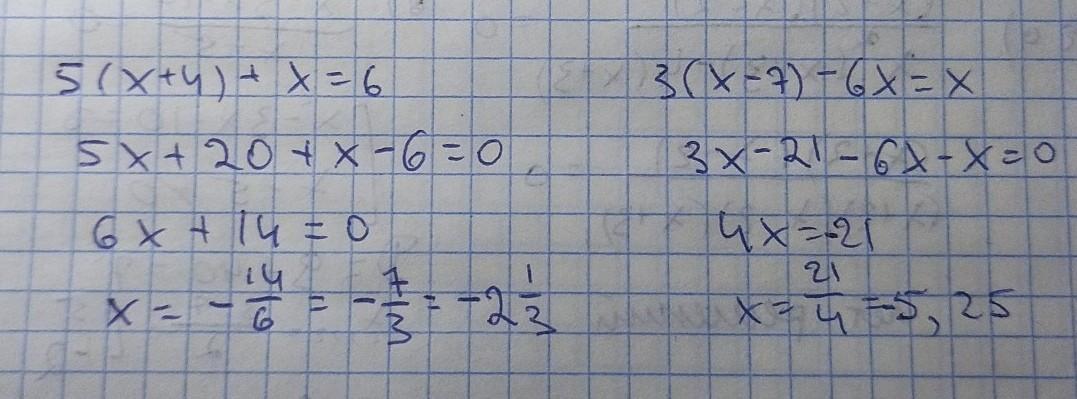 5(x+4)+x=6
5x+20+x-6=0
6x+14=0
x=-14/6=-7/3=-2 1/3
3(x-7)-6x=x
3x-21-6x-x=0
4x=-21
x=21/4=-5,25